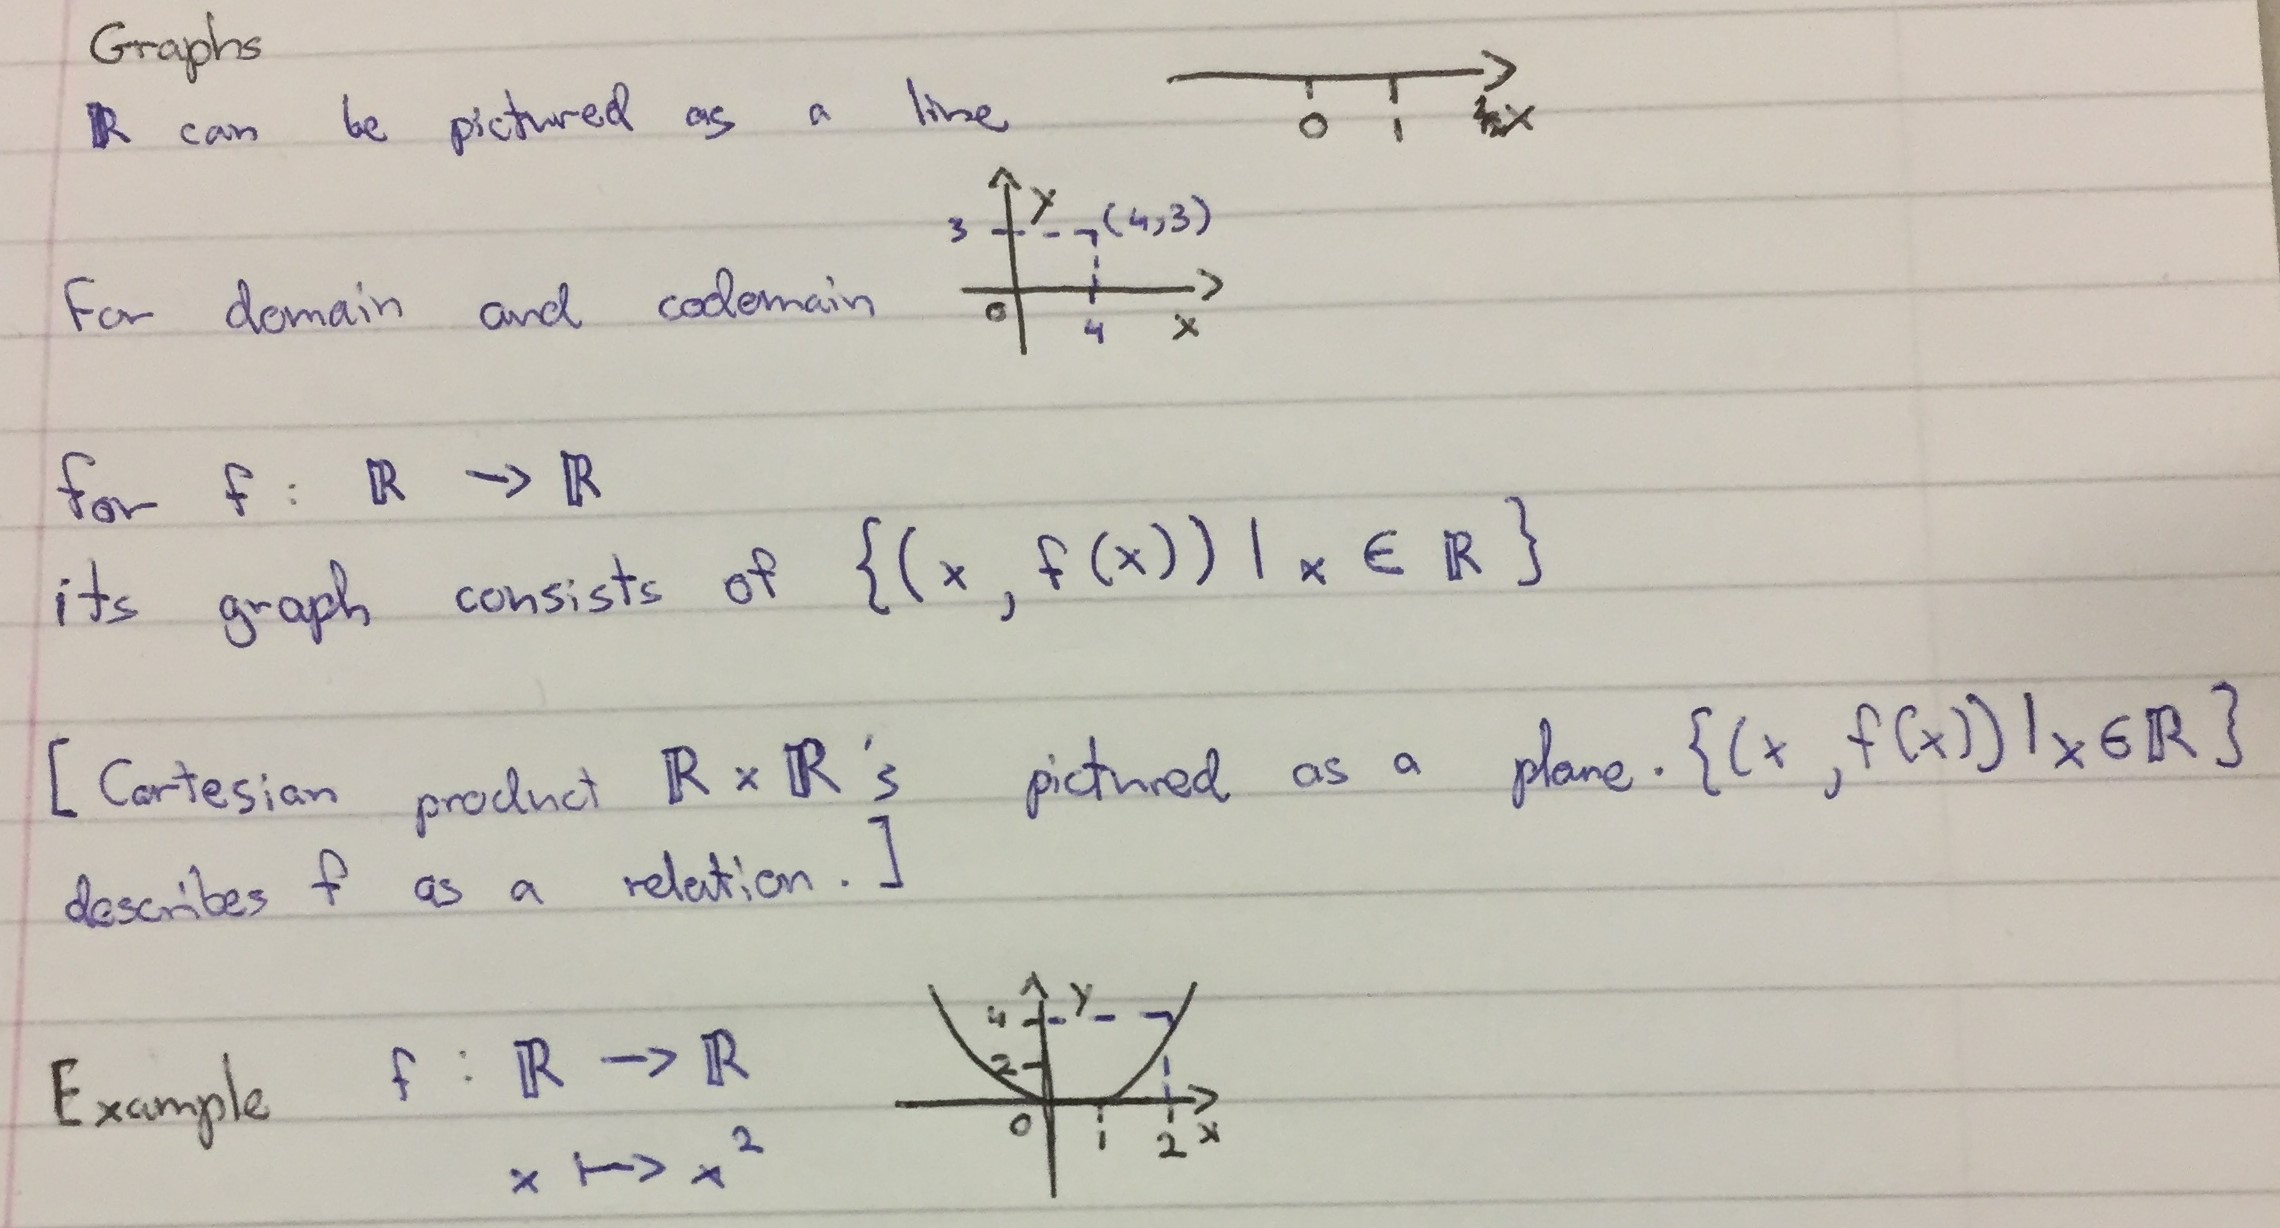 Graphs
ℝ can be pictured as a line
0 1 x
y
3 (4,3)
For domain and codomain
0 4 x
for f : ℝ → ℝ
its graph consists of {(x, f(x)) | x ∈ ℝ}
[Cartesian product ℝ × ℝ's pictured as a plane. {(x, f(x)) | x ∈ ℝ}
describes f as a relation.]
y
4
2
Example f : ℝ → ℝ
0 1 2 x
x ↦ x²